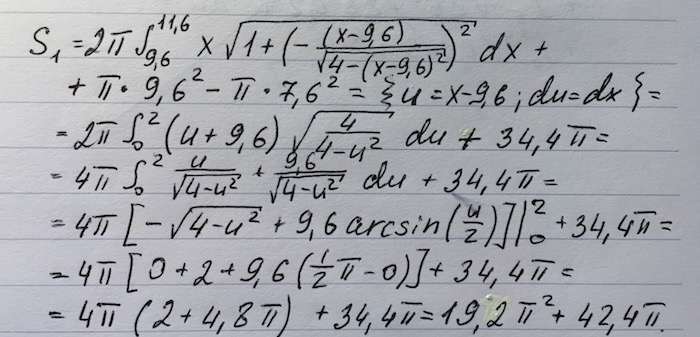 S₁ = 2π ∫_{9,6}^{11,6} x √(1+(-(x-9,6)/√(4-(x-9,6)²))²) dx +
+ π·9,6² - π·7,6² = {u=x-9,6; du=dx} =
= 2π ∫₀² (u+9,6) √(4/(4-u²)) du + 34,4π =
= 4π ∫₀² u/√(4-u²) + 9,6/√(4-u²) du + 34,4π =
= 4π [-√(4-u²) + 9,6 arcsin(u/2)]|₀² + 34,4π =
= 4π [0+2+9,6(1/2 π-0)] + 34,4π =
= 4π (2+4,8π) + 34,4π = 19,2π² + 42,4π.